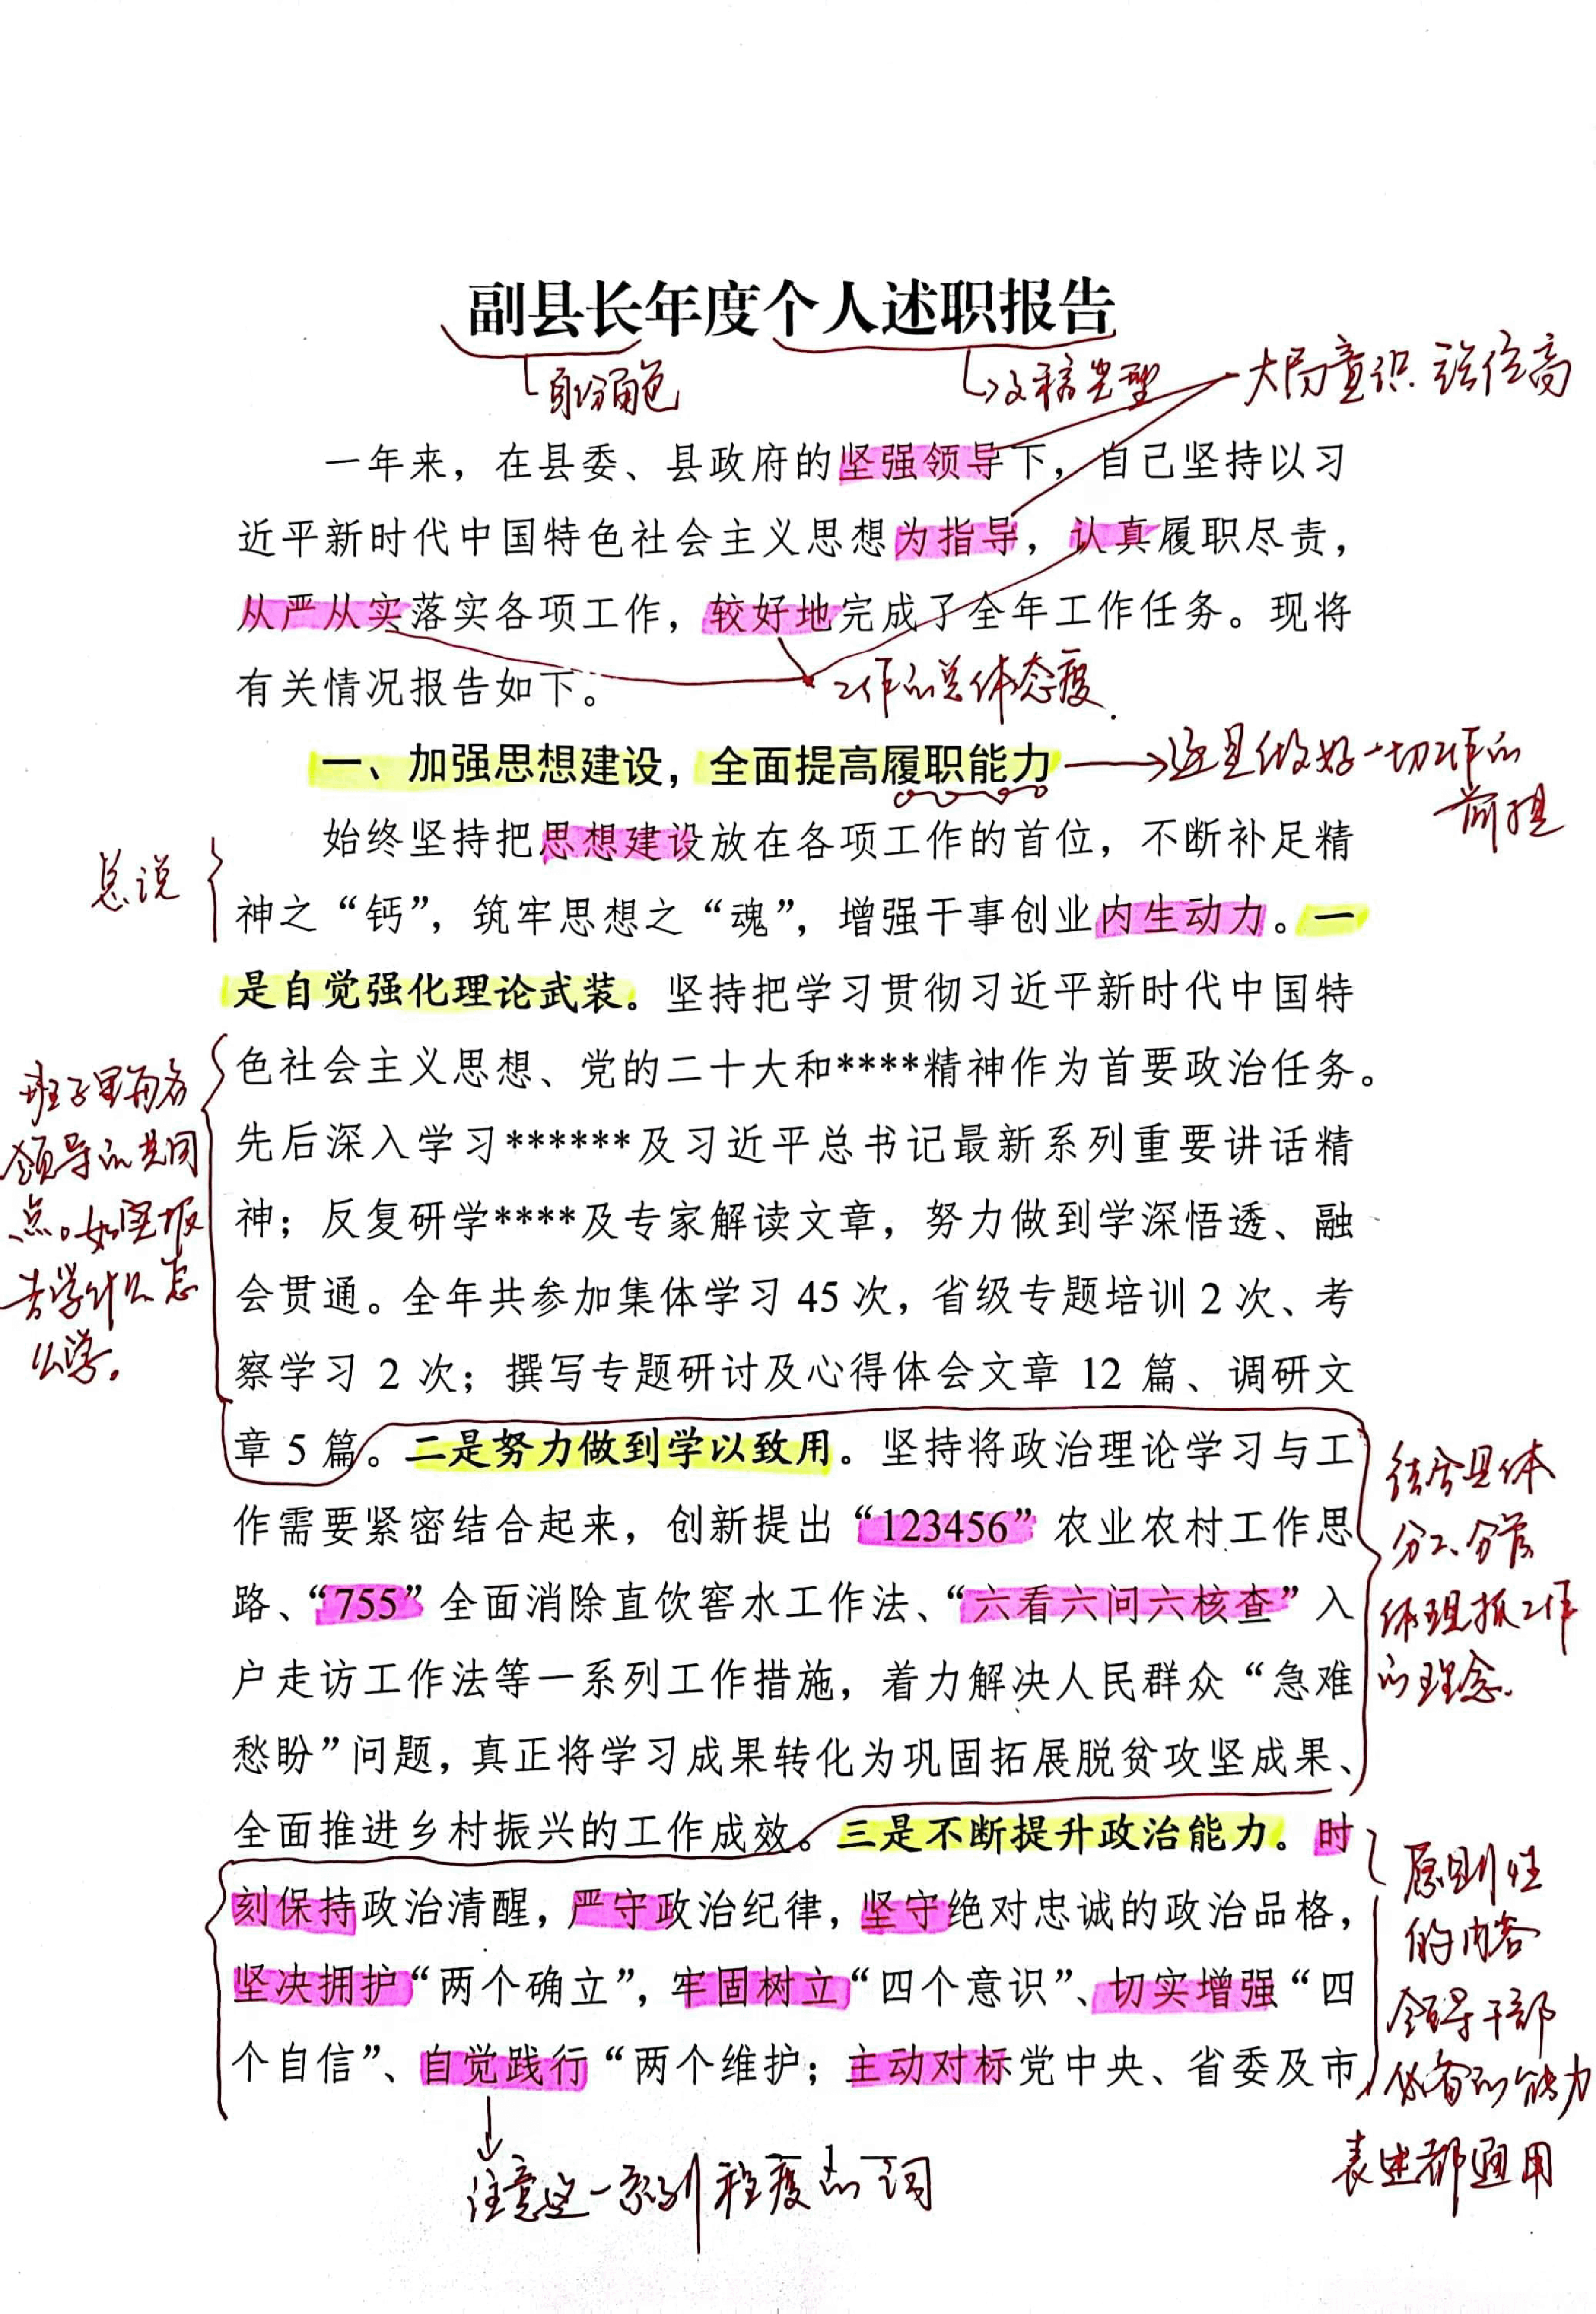 副县长年度个人述职报告
身份角色
文稿类型
大局意识 站位高
一年来，在县委、县政府的坚强领导下，自己坚持以习
近平新时代中国特色社会主义思想为指导，认真履职尽责，
从严从实落实各项工作，较好地完成了全年工作任务。现将
有关情况报告如下。
工作的总体态度.
一、加强思想建设，全面提高履职能力
这是做好一切工作的
前提
总说
始终坚持把思想建设放在各项工作的首位，不断补足精
神之“钙”，筑牢思想之“魂”，增强干事创业内生动力。一
是自觉强化理论武装。坚持把学习贯彻习近平新时代中国特
色社会主义思想、党的二十大和****精神作为首要政治任务。
先后深入学习******及习近平总书记最新系列重要讲话精
神；反复研学****及专家解读文章，努力做到学深悟透、融
会贯通。全年共参加集体学习 45 次，省级专题培训 2 次、考
察学习 2 次；撰写专题研讨及心得体会文章 12 篇、调研文
章 5 篇。二是努力做到学以致用。坚持将政治理论学习与工
作需要紧密结合起来，创新提出“123456”农业农村工作思
路、“755”全面消除直饮窖水工作法、“六看六问六核查”入
户走访工作法等一系列工作措施，着力解决人民群众“急难
愁盼”问题，真正将学习成果转化为巩固拓展脱贫攻坚成果、
全面推进乡村振兴的工作成效。三是不断提升政治能力。时
刻保持政治清醒，严守政治纪律，坚守绝对忠诚的政治品格，
坚决拥护“两个确立”，牢固树立“四个意识”、切实增强“四
个自信”、自觉践行“两个维护；主动对标党中央、省委及市
班子里每名
领导的共同
点。如实报
告学什么怎
么学。
结合具体
分工、分管
体现抓工作
的理念.
原则性
的内容
领导干部
具备的能力
表述都通用
— 1 —
注意这一系列程度的词